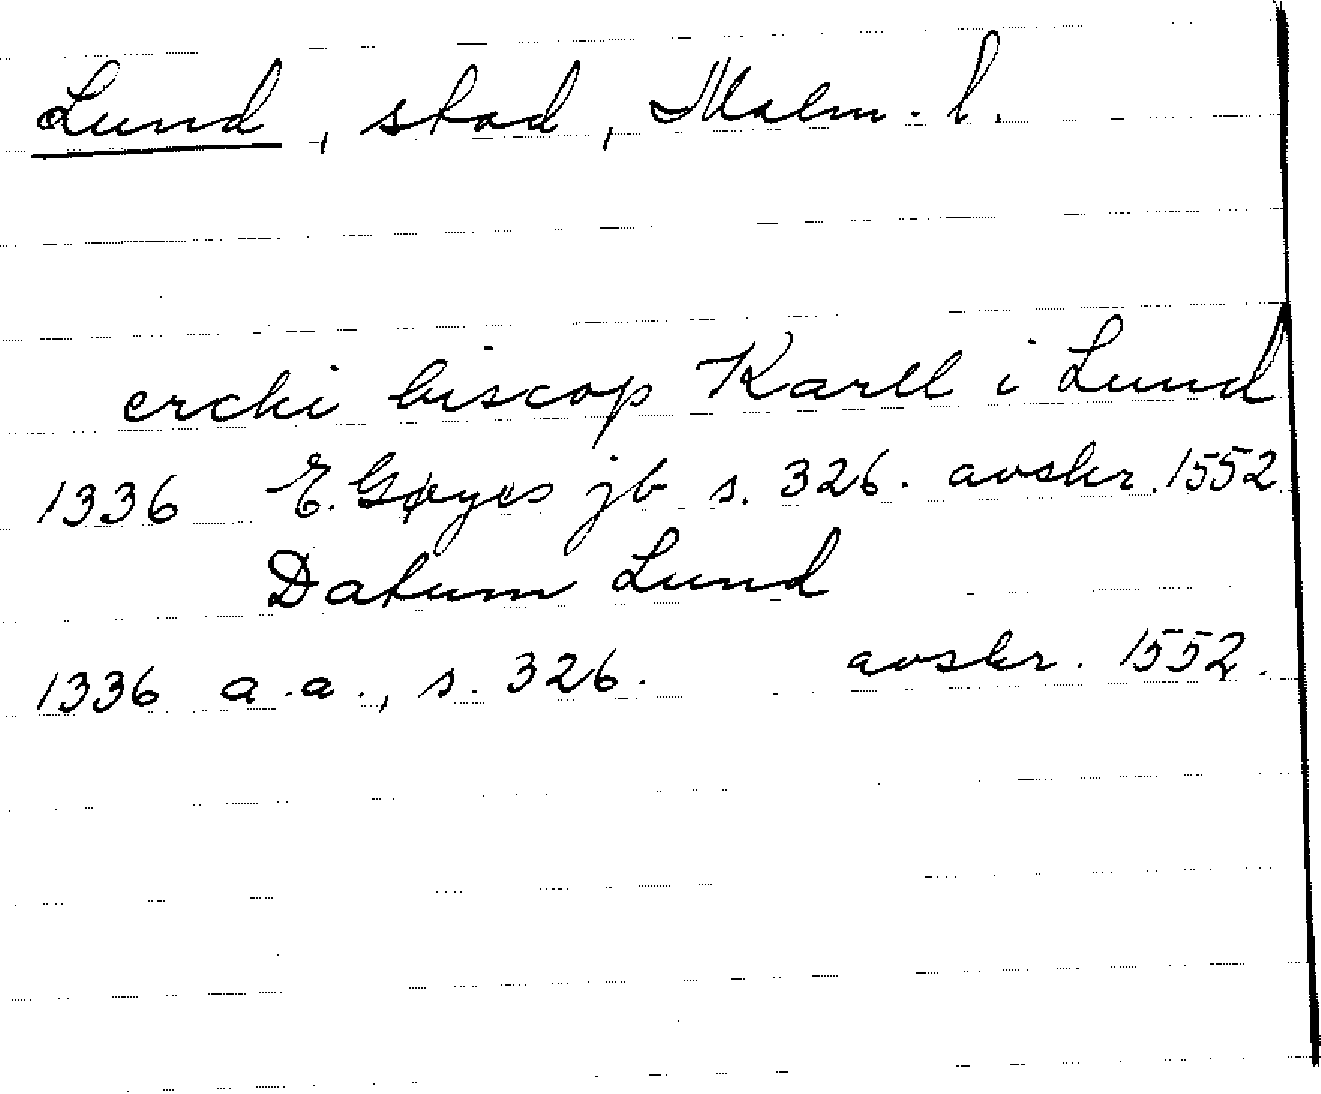 Lund, stad, Malm. l.
erchi biscop Karll i Lund
1336 E. Gøyes jb s. 326. avskr. 1552
Datum Lund
1336 a.a., s. 326. avskr. 1552.